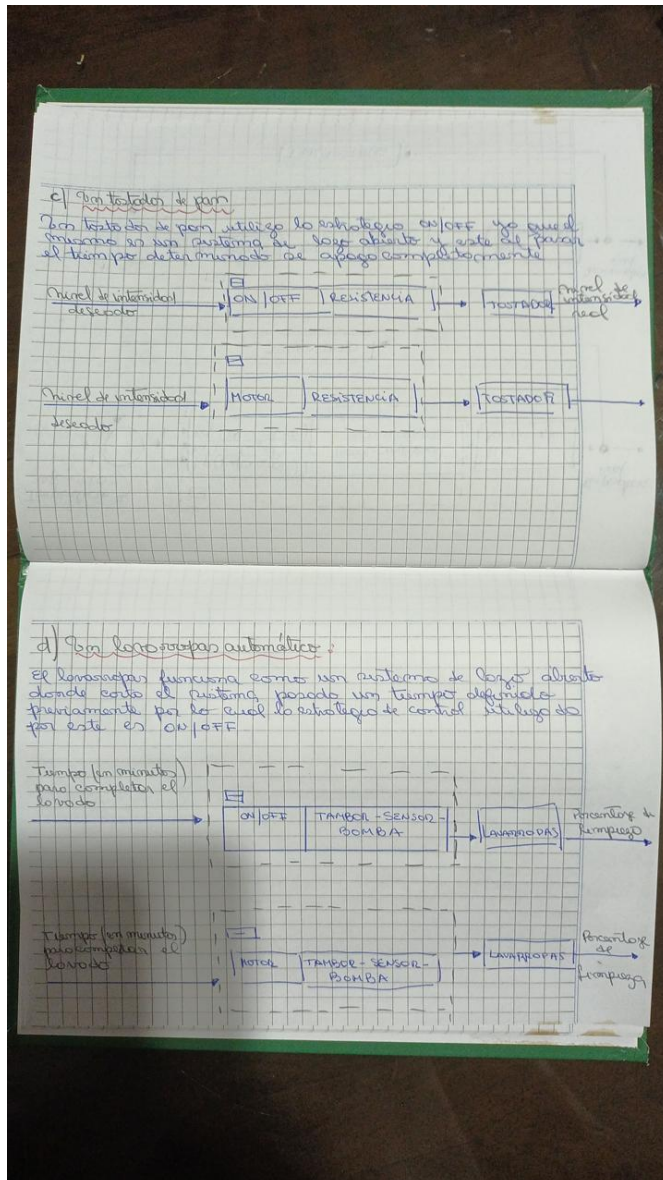 c) Un tostador de pan
Un tostador de pan utiliza la estrategia ON/OFF ya que el
mismo es un sistema de lazo abierto y este al pasar
el tiempo determinado se apaga completamente
Nivel de intensidad
deseado
ON/OFF
RESISTENCIA
TOSTADOR
Nivel de
intensidad
real
Nivel de intensidad
deseado
MOTOR
RESISTENCIA
TOSTADOR
d) Un lavarropas automático:
El lavarropas funciona como un sistema de lazo abierto
donde corta el sistema pasado un tiempo definido
previamente por lo cual la estrategia de control utilizada
por este es ON/OFF
Tiempo (en minutos)
para completar el
lavado
ON/OFF
TAMBOR-SENSOR-
BOMBA
LAVARROPAS
Porcentaje de
limpieza
Tiempo (en minutos)
para completar el
lavado
MOTOR
TAMBOR-SENSOR-
BOMBA
LAVARROPAS
Porcentaje
de
limpieza